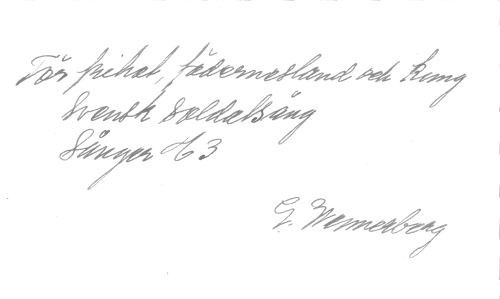 För frihet, fädernesland och kung
Svensk soldatsång
Sånger № 3
G. Wennerberg